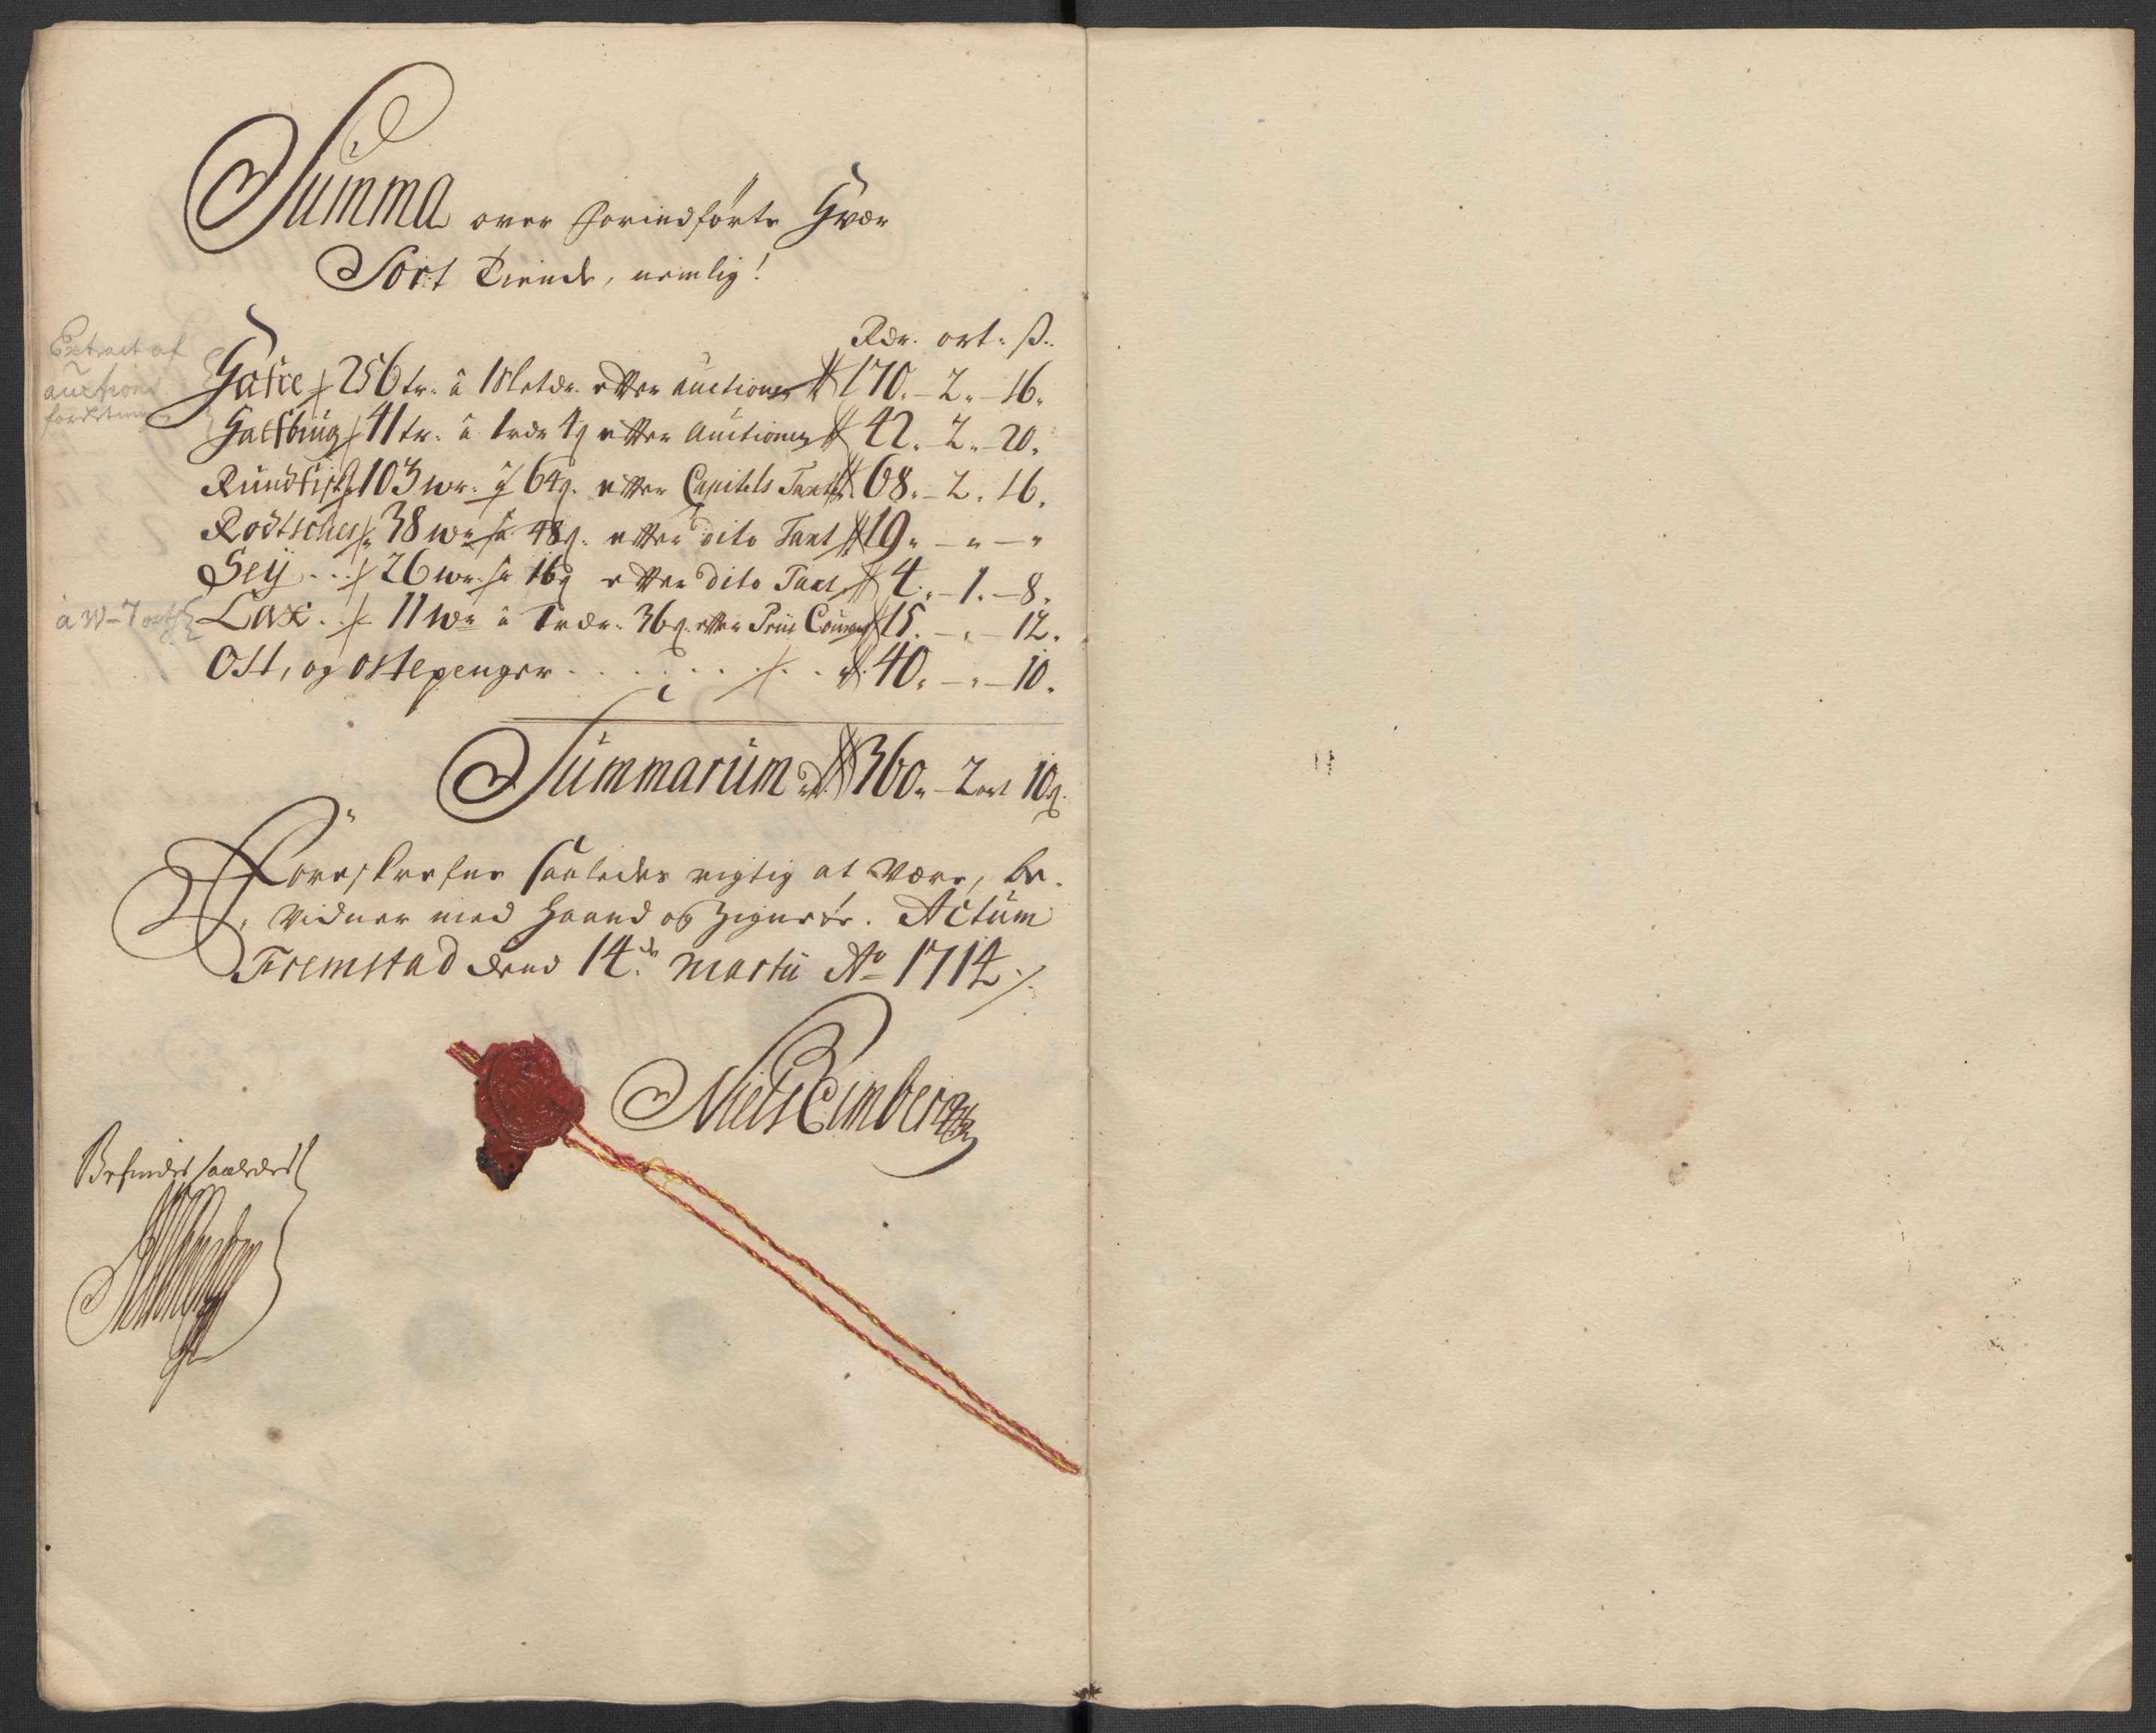 Summa over forindførte Hver
Sort Tiende, nemlig!
Rdr. ort. ß.
Extract af
auctions
forretning
Hafre 256 tr. à 1 Sletdr. efter auctionen 170. - 2. - 16.
Haffbüg 41 tr. à 1 rdr 4 ß efter Auctionen 42. - 2. - 20.
Rundfisk 103 wr. à 64 ß. efter Capitels Taxt 68. - 2. 16.
Rodtscher 38 wr à 48 ß. efter dito Taxt 19. - " - "
Seÿ . . . 26 wr. à 16 ß efter dito Taxt 4. - 1. - 8.
à W - 7 ort
Lax . . 11 wr à 1 rdr. 36 ß. efter Priis Courant 15. - " - 12.
Ost, og ostepenger . . . . . . . . 40. - " - 10.
Summarum Rdr 360. - 2 ort 10 ß.
Foreskrefne saaledes rigtig at være, be-
vidner med Haand og Zignete. Actum
Fremstad dend 14de Martii Ao 1714 ./.
Niels Eimberg
Befindes saaledes